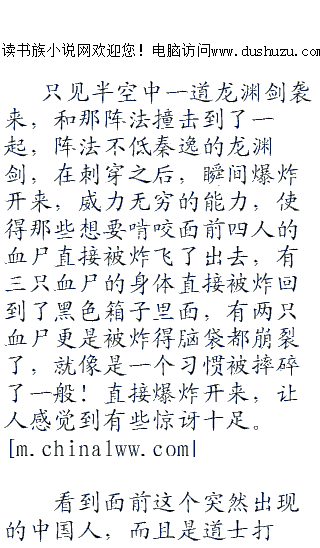 读书族小说网欢迎您！电脑访问www.dushuzu.com
只见半空中一道龙渊剑袭
来，和那阵法撞击到了一
起，阵法不低秦逸的龙渊
剑，在刺穿之后，瞬间爆炸
开来，威力无穷的能力，使
得那些想要啃咬面前四人的
血尸直接被炸飞了出去，有
三只血尸的身体直接被炸回
到了黑色箱子里面，有两只
血尸更是被炸得脑袋都崩裂
了，就像是一个习惯被摔碎
了一般！直接爆炸开来，让
人感觉到有些惊讶十足。
[m.china1ww.com]
看到面前这个突然出现
的中国人，而且是道士打